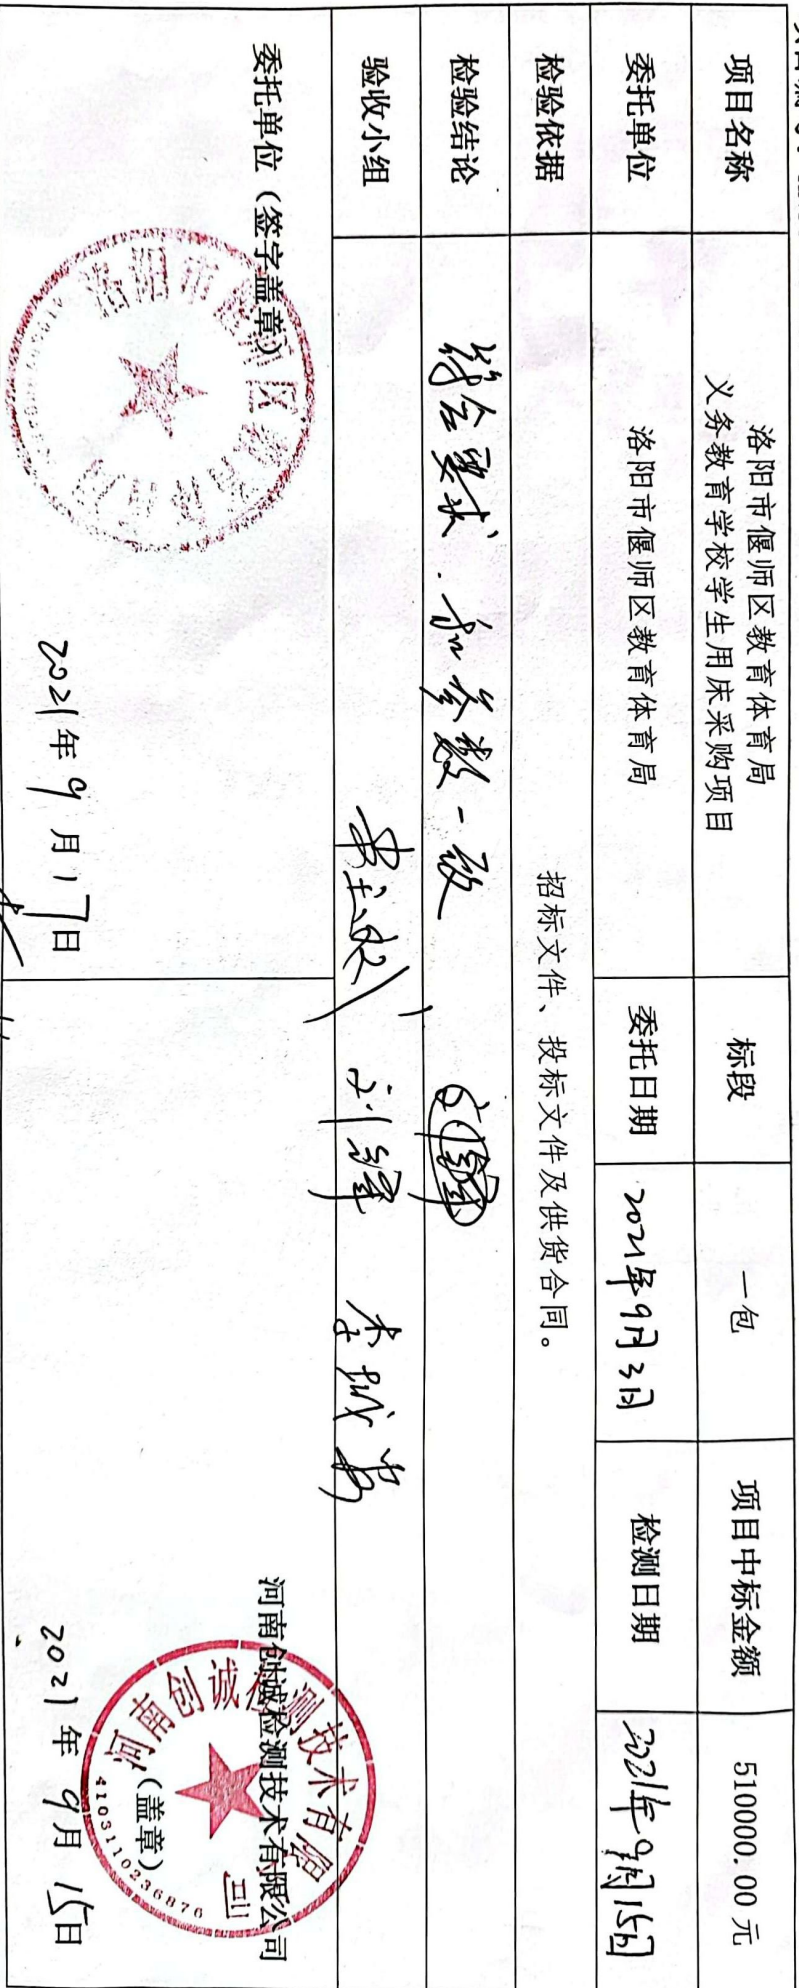 项目名称
洛阳市偃师区教育体育局
义务教育学校学生用床采购项目
标段
一包
项目中标金额
510000.00 元
委托单位
洛阳市偃师区教育体育局
委托日期
2021年9月3日
检测日期
2021年9月15日
检验依据
招标文件、投标文件及供货合同。
检验结论
符合要求.和参数一致
验收小组
刘锋
委托单位（签字盖章）
2021年9月17日
河南创诚检测技术有限公司
（盖章）
河南创诚检测技术有限公司
4103110236876
2021年9月15日